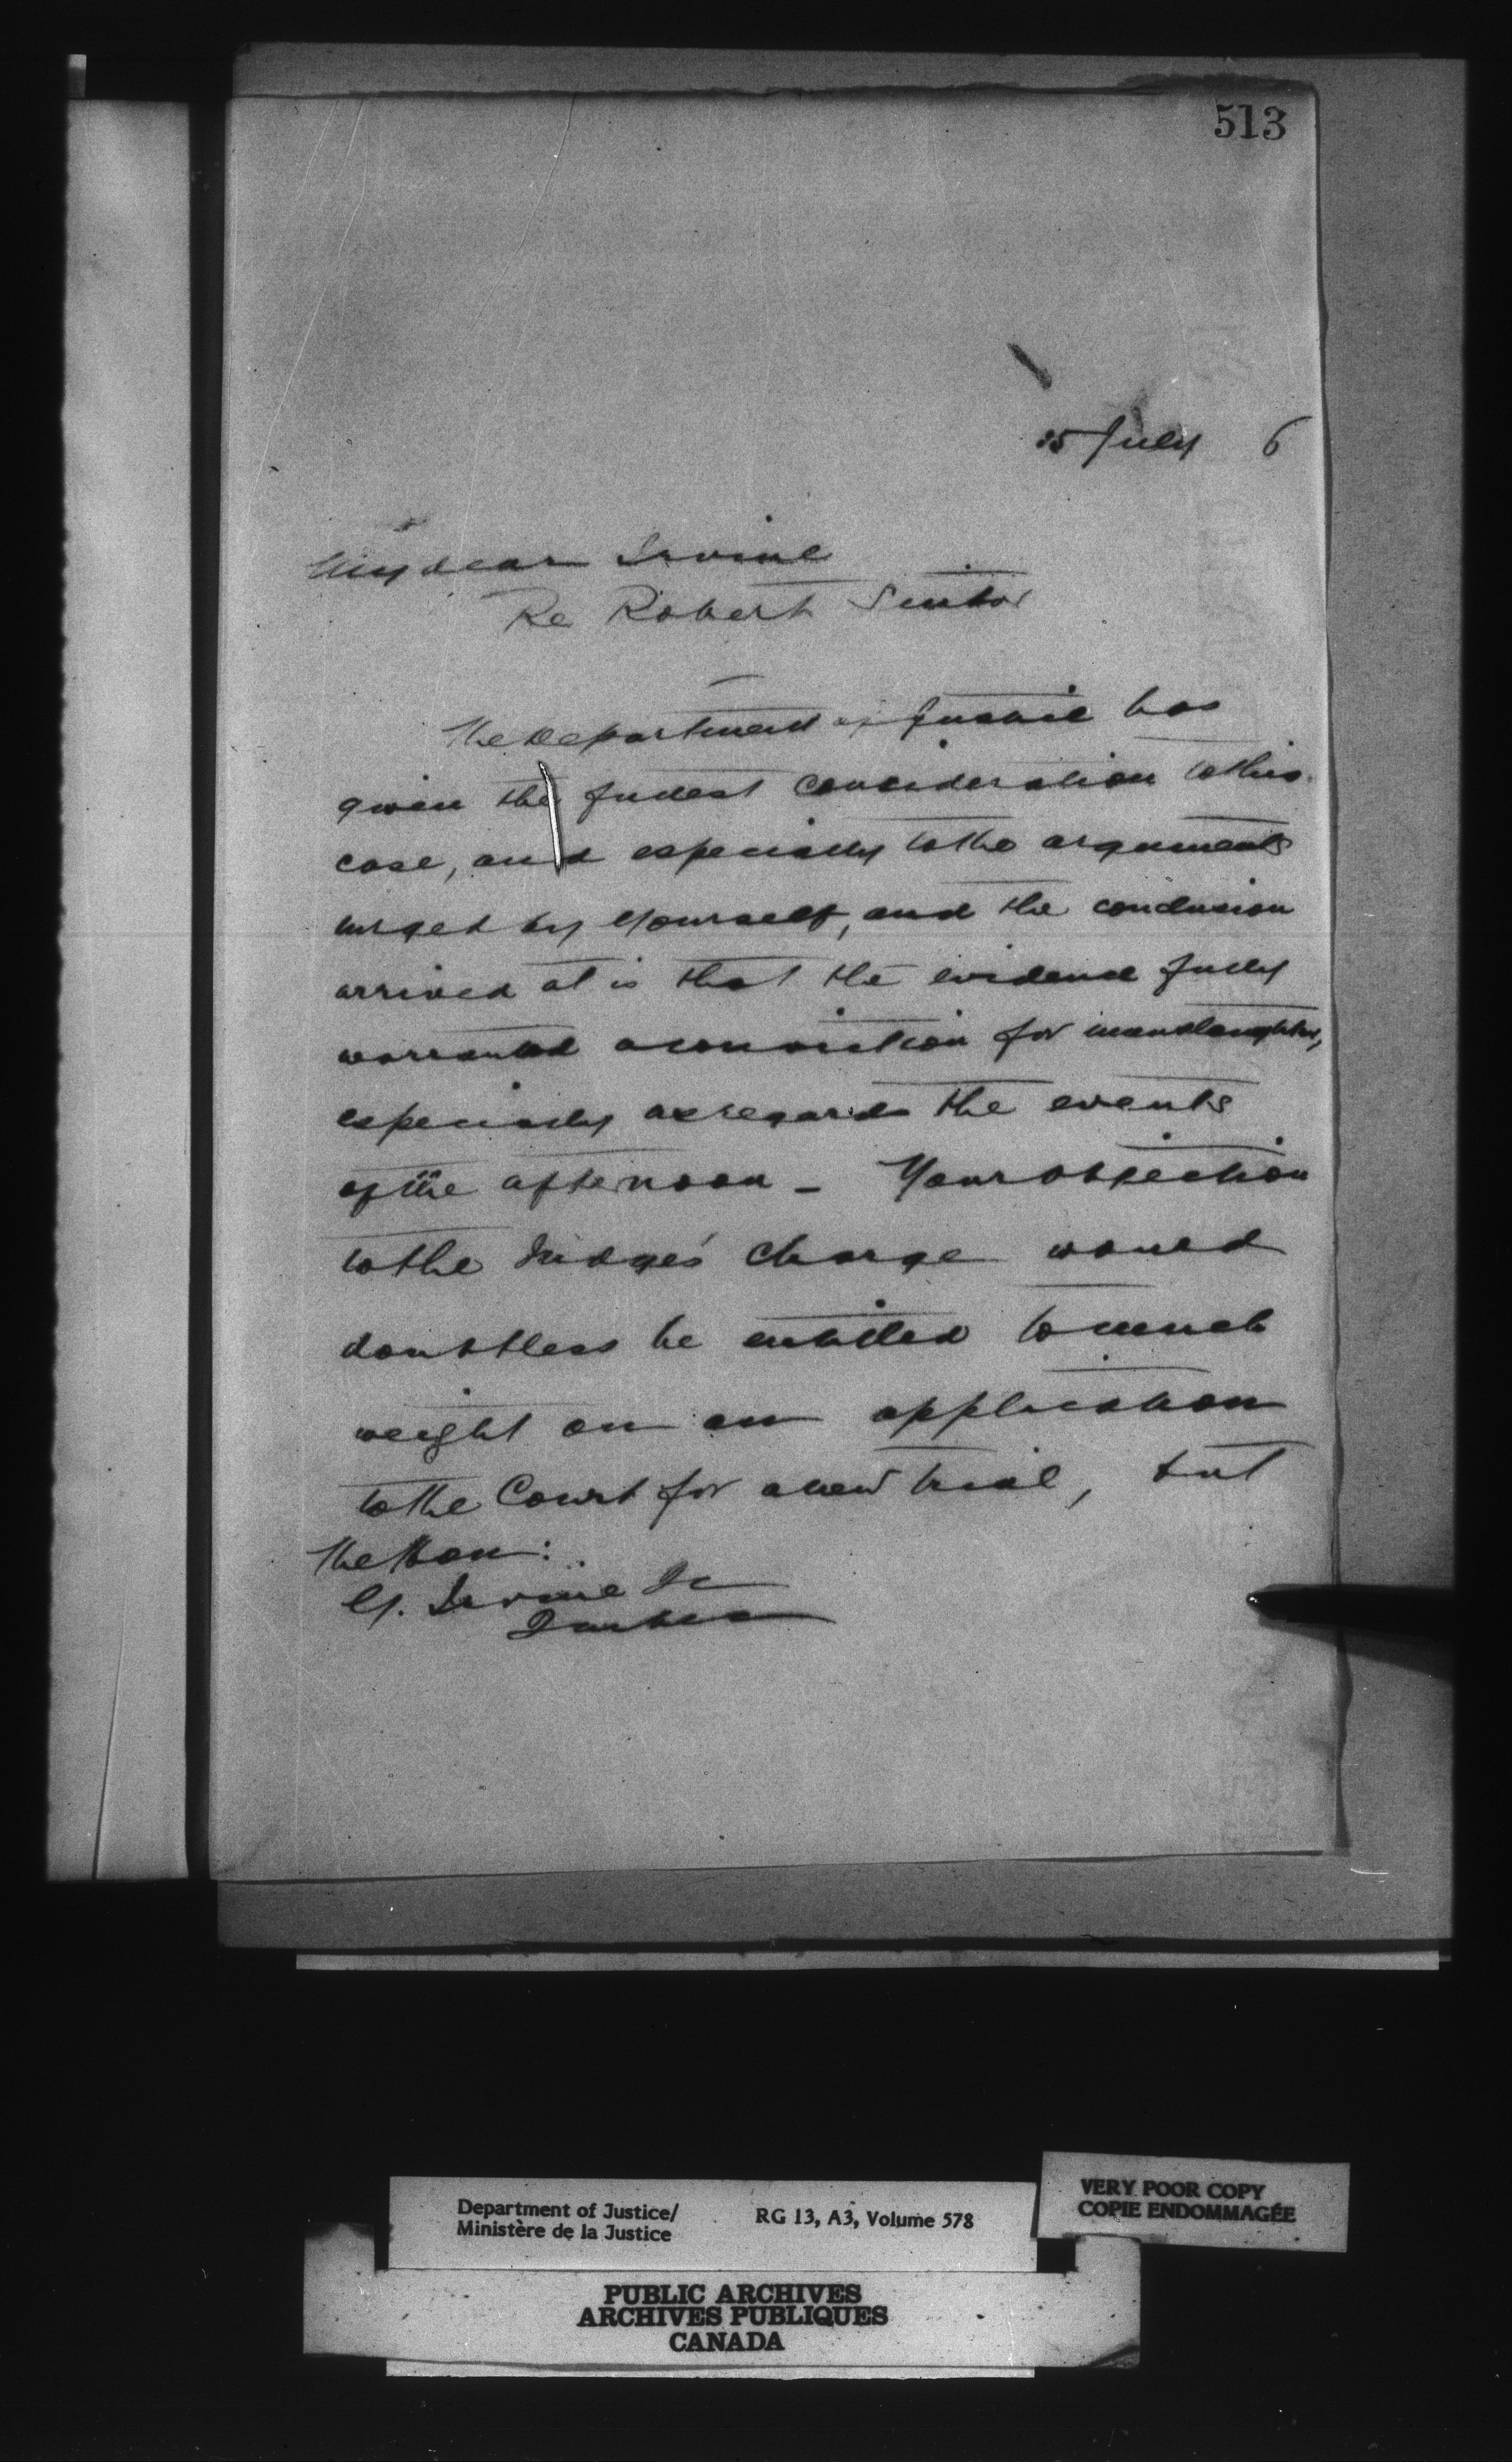 513
25 July 6
My dear Irvine
Re Robert
The Department of Justice has
given the fullest consideration to this
case, and especially to the arguments
urged by yourself, and the conclusion
arrived at is that the evidence fully
warranted a conviction for manslaughter,
especially as regards the events
of the afternoon - Your objection
to the Judge's charge would
doubtless be entitled to much
weight on an application
to the Court for a new trial, but
The Hon:
G. Irvine Qc
Quebec
Department of Justice/
Ministère de la Justice
RG 13, A3, Volume 578
VERY POOR COPY
COPIE ENDOMMAGÉE
PUBLIC ARCHIVES
ARCHIVES PUBLIQUES
CANADA